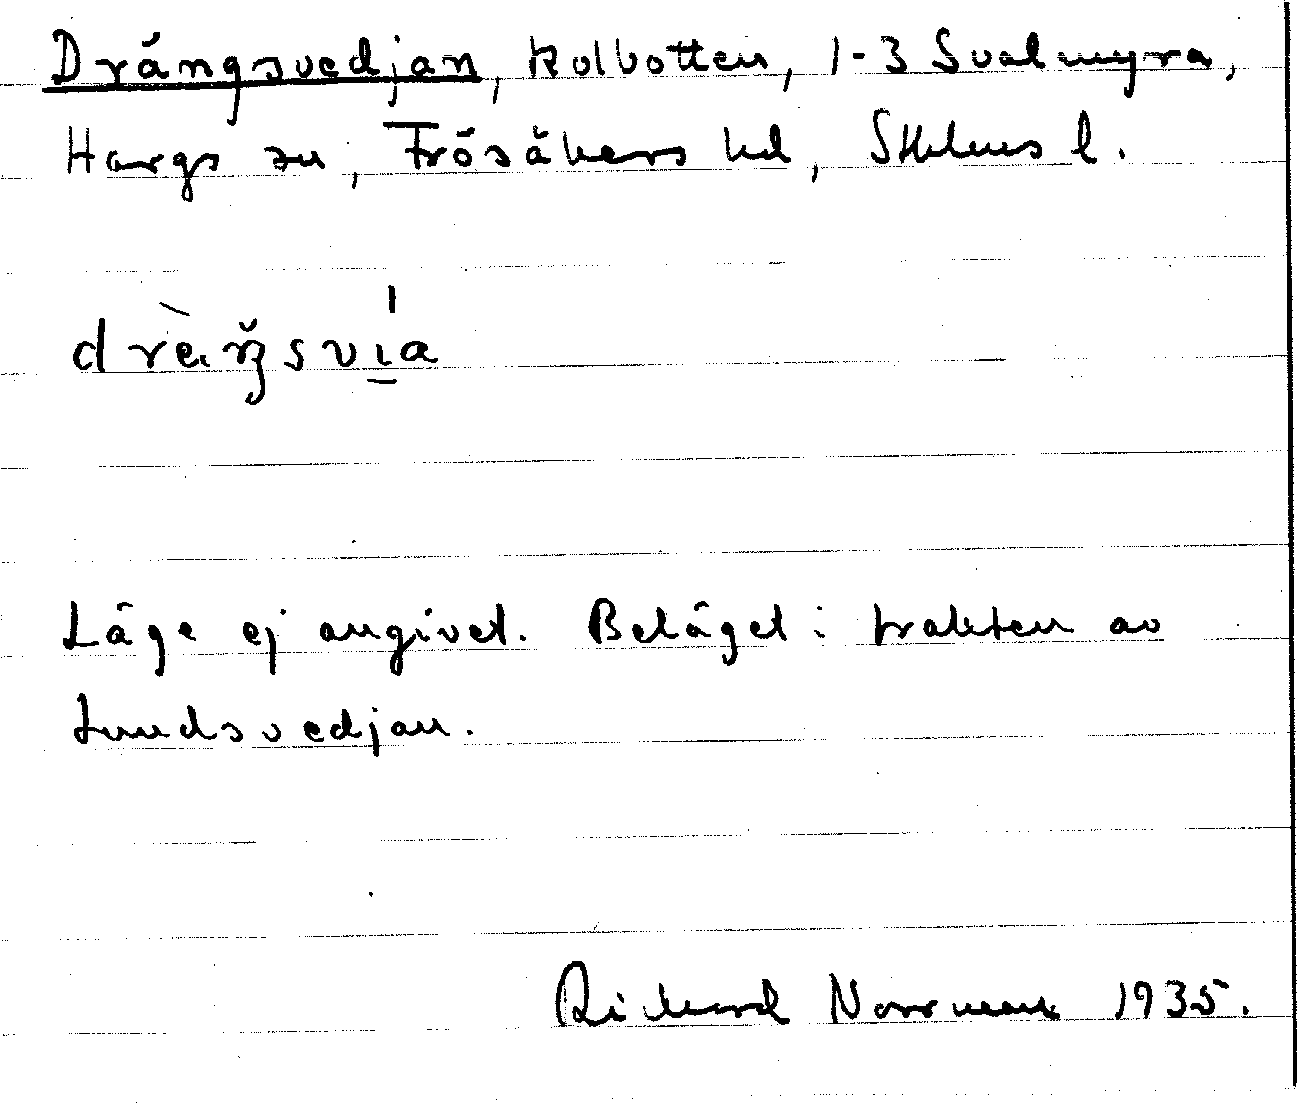 Drängsvedjan, kolbotten, 1-3 Svalmyra,
Hargs sn, Frösåkers hd, Sthlms l.
Läge ej angivet. Beläget i trakten av
Lundsvedjan.
Richard Norrman 1935.